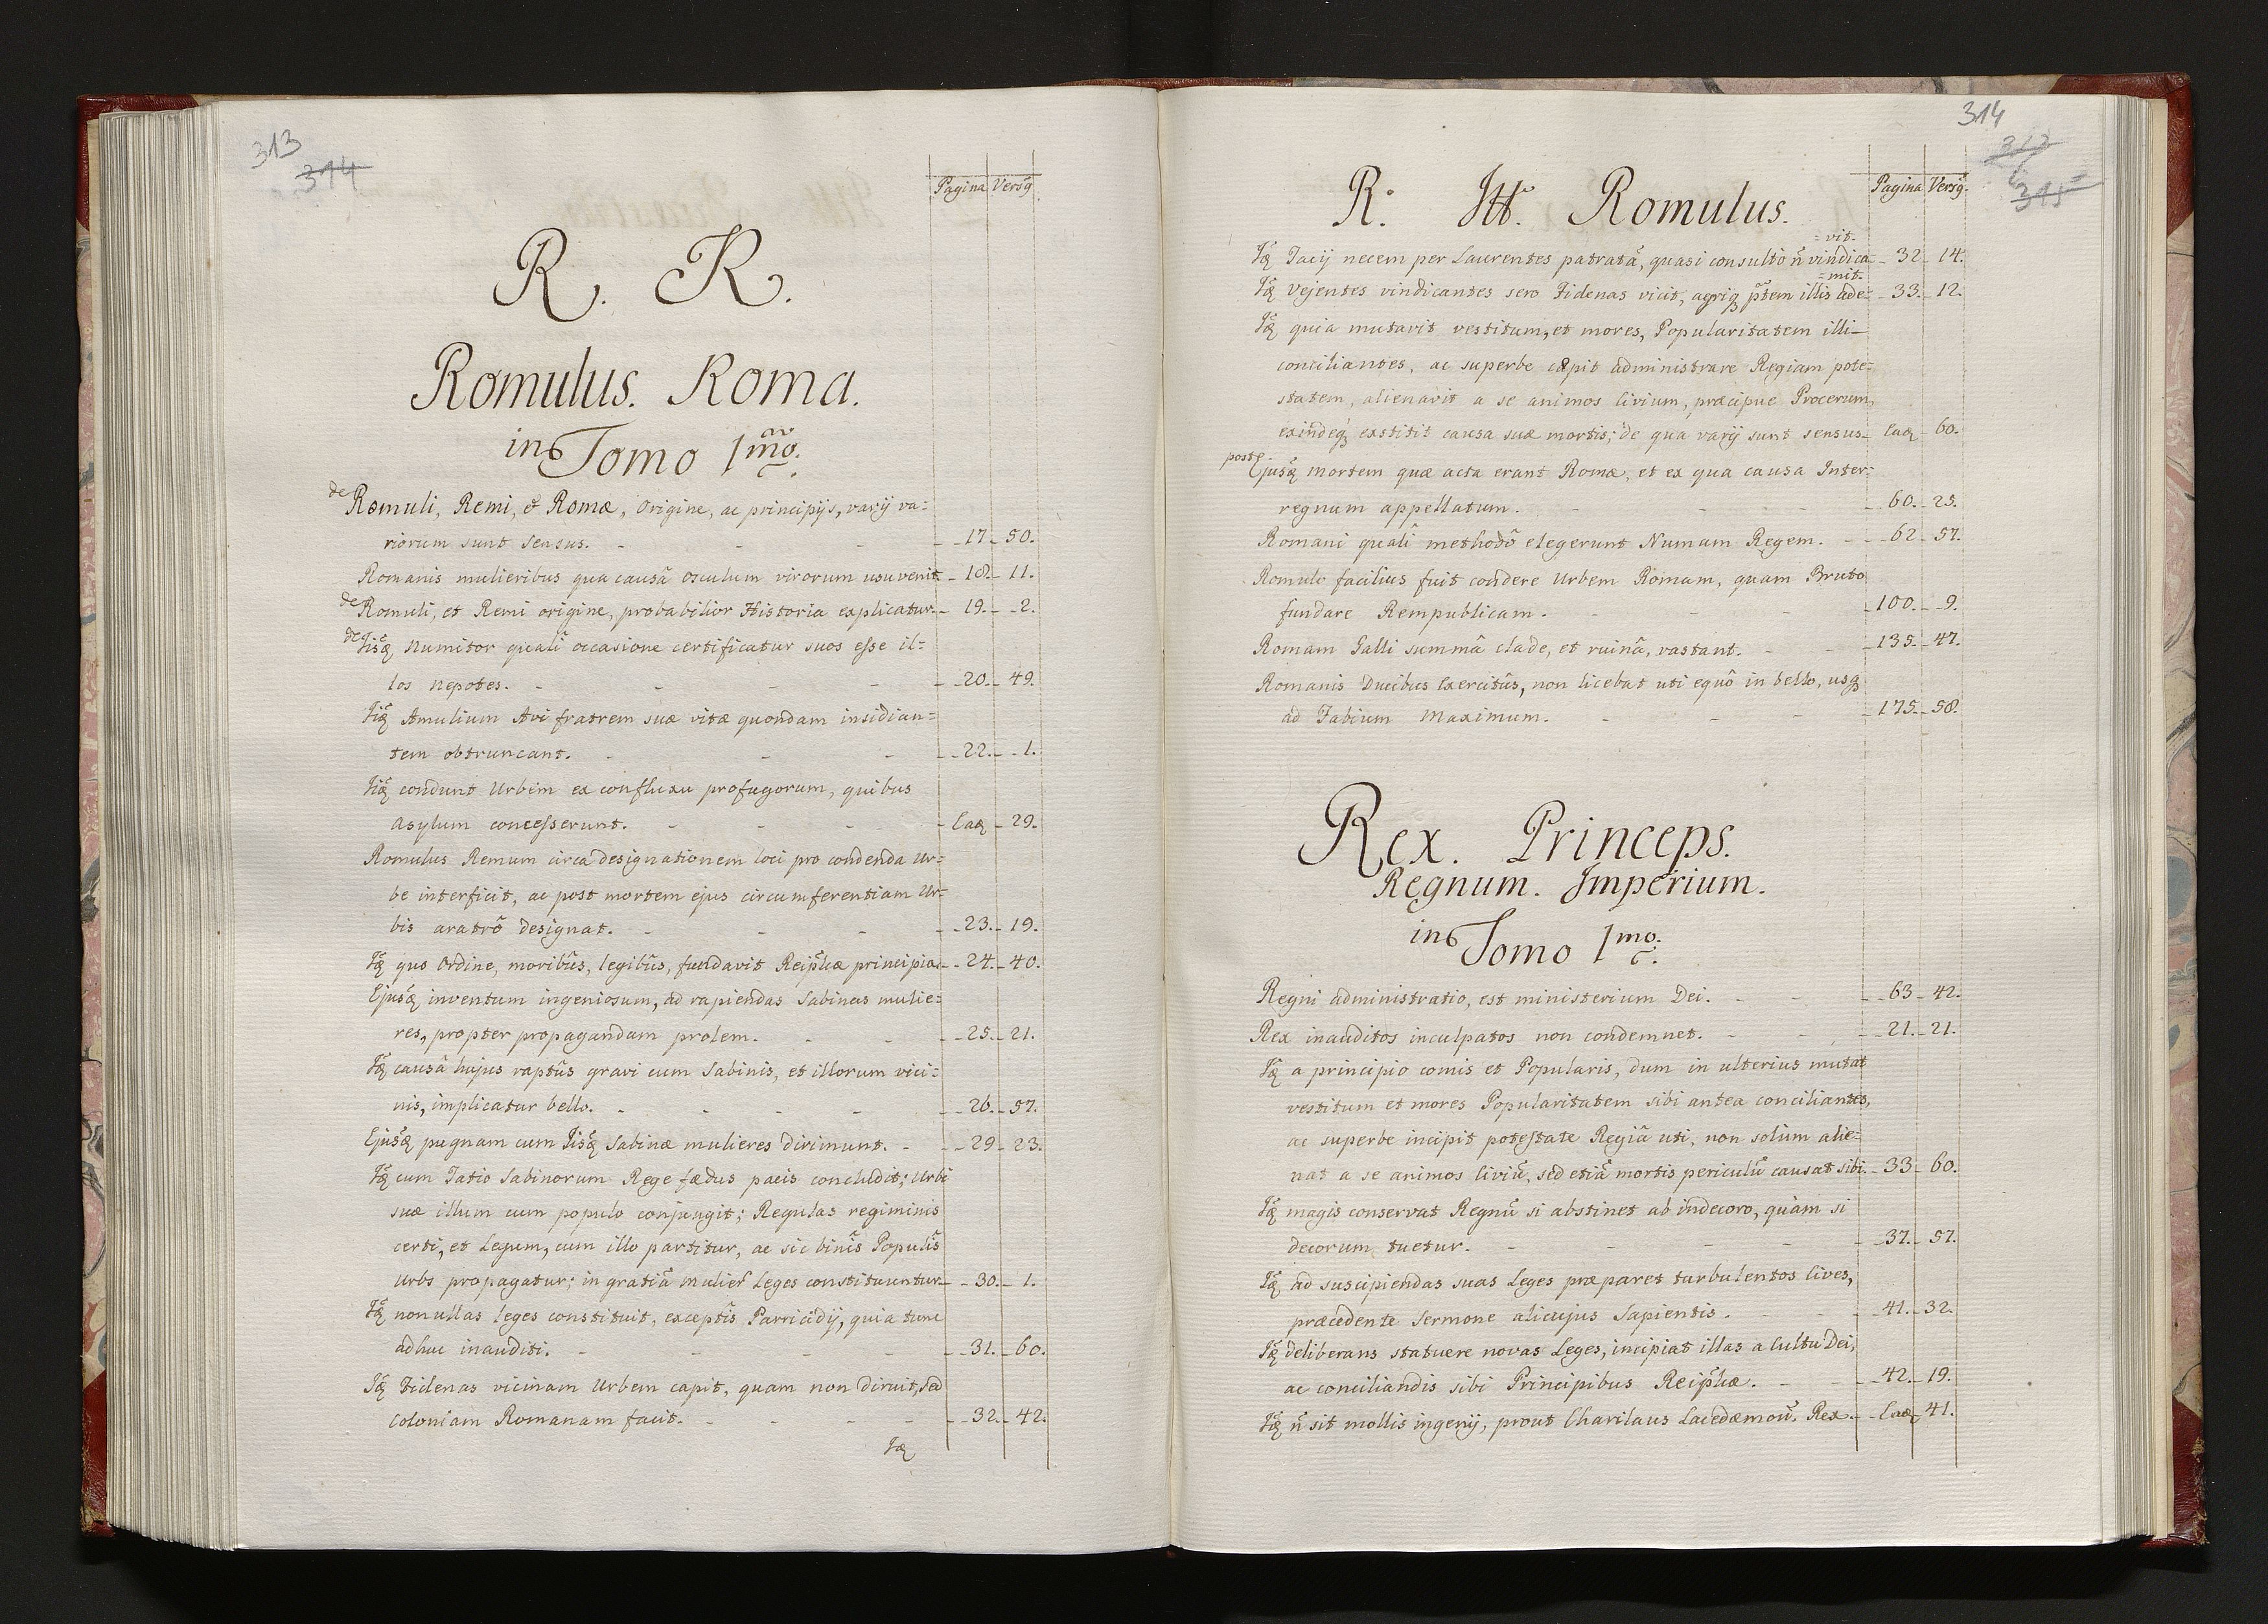 313
314
Pagina Versq
R. R.
Romulus. Roma.
in Tomo 1mo.
de Romuli, Remi, & Romæ, origine, ac principijs, varij va=
riorum sunt sensus. - - - 17 - 50.
Romanis mulieribus qua causâ osculum virorum usu venit - 18. - 11.
de Romuli, et Remi origine, probabilior Historia explicatur - 19. - 2.
de Iisq Numitor quali occasione certificatur suos esse il=
los nepotes. - - - - 20. - 49.
Iiq Amulium Avi fratrem suæ vitæ quondam insidian=
tem obtruncant. - - - 22. - 1.
Iiq condunt Urbem ex confluxu profugorum, quibus
asylum concesserunt. - - - Eaq - 29.
Romulus Remum circa designationem loci pro condenda Ur=
be interficit, ac post mortem ejus circumferentiam Ur=
bis aratrô designat. - - - 23. - 19.
Iq quo Ordine, moribûs, legibûs, fundavit Reiplicæ principia - 24. - 40.
Ejusq inventum ingeniosum, ad rapiendas Sabinas mulie=
res, propter propagandam prolem. - - - 25. - 21.
Iq causâ hujus raptûs gravi cum Sabinis, et illorum vici=
nis, implicatur bello. - - - - 26. - 57.
Ejusq pugnam cum Iisq Sabinæ mulieres dirimunt. - - 29 - 23.
Iq cum Tatio Sabinorum Rege fædus pacis concludit; Urbi
suæ illum cum populo conjungit; Regulas regiminis
certi, et Legum, cum illo partitur, ac sic binîs Populîs
Urbs propagatur; in gratiã mulier Leges constituuntur - 30. - 1.
Iq nonullas leges constituit, exceptîs Parricidij, quia tunc
adhuc inauditi. - - - - 31. - 60.
Iq Fidenas vicinam Urbem capit, quam non diruit, sed
Coloniam Romanam facit. - - - 32. - 42.
Iq
314
315
Pagina Versq.
R. Romulus.
=vit.
Iq Tacij necem per Laurentes patratã, quasi consultò ñ vindica= - 32 - 14.
=mit.
Iq Vejentes vindicantes sero Fidenas vicit, agriq ptem illis ade= - 33. - 12.
Iq quia mutavit vestitum, et mores, Popularitatem illi
conciliantes, ac superbe cæpit administrare Regiam pote=
statem, alienavit a se animos Civium, præcipue Procerum,
exindeq exstitit causa suæ mortis; de quâ varij sunt sensus - Eaq - 60.
post Ejusq mortem quæ acta erant Romæ, et ex qua causa Inter=
regnum appellatum. - - - 60. - 25.
Romani quali methodô elegerunt Numam Regem. - - 62 - 57.
Romulo facilius fuit condere Urbem Romam, quam Bruto
fundare Rempublicam. - - - 100. - 9.
Romam Galli summâ clade, et ruinâ, vastant. - - 135. - 47.
Romanis Ducibus Exercitûs, non licebat uti equô in bello, usq
ad Fabium Maximum. - - - 175. - 58.
Rex. Princeps.
Regnum. Imperium.
in Tomo 1mo.
Regni administratio, est ministerium Dei. - - 63 - 42.
Rex inauditos inculpatos non condemnet. - - 21. - 21.
Iq a principio comis et Popularis, dum in ulterius mutat
vestitum et mores Popularitatem sibi antea conciliantes,
ac superbe incipit potestate Regiâ uti, non solùm alie=
nat a se animos Civiũ, sed etiã mortis periculũ causat sibi - 33 - 60.
Iq magis conservat Regnũ si abstinet ab indecoro, quàm si
decorum tuetur. - - - - 37. - 57.
Iq ad suscipiendas suas Leges præparet turbulentos Cives,
præcedente Sermone alicujus Sapientis. - - 41. - 32.
Iq deliberans statuere novas Leges, incipiat illas a Cultu Dei,
ac conciliandis sibi Principibus Reiplicæ. - - 42. - 19.
Iq ñ sit mollis ingenij, prout Charilaus Lacedæmoñ. Rex. - Eaq - 41.